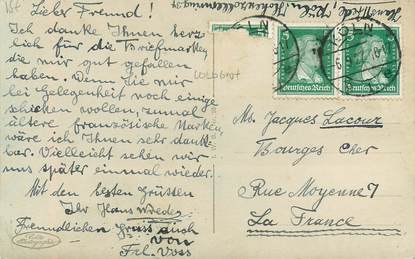 Lieber Freund!
Ich danke Ihnen herz
lich für die Briefmarken,
die mir gut gefallen
haben. Wenn Sie mir
bei Gelegenheit noch einige
schicken wollen, zumal
ältere französische Marken,
wäre ich Ihnen sehr dank
bar. Vielleicht sehen wir
uns später einmal wieder.
Mit den besten Grüßen
Ihr Hans Wrede
Freundlichen Gruss auch
von
Frl. Voss
Hans Wrede, Köln,
KÖLN
Deutsches Reich
Deutsches Reich
Ms. Jacques Lacour
Bourges Cher
Rue Moyenne 7
La France